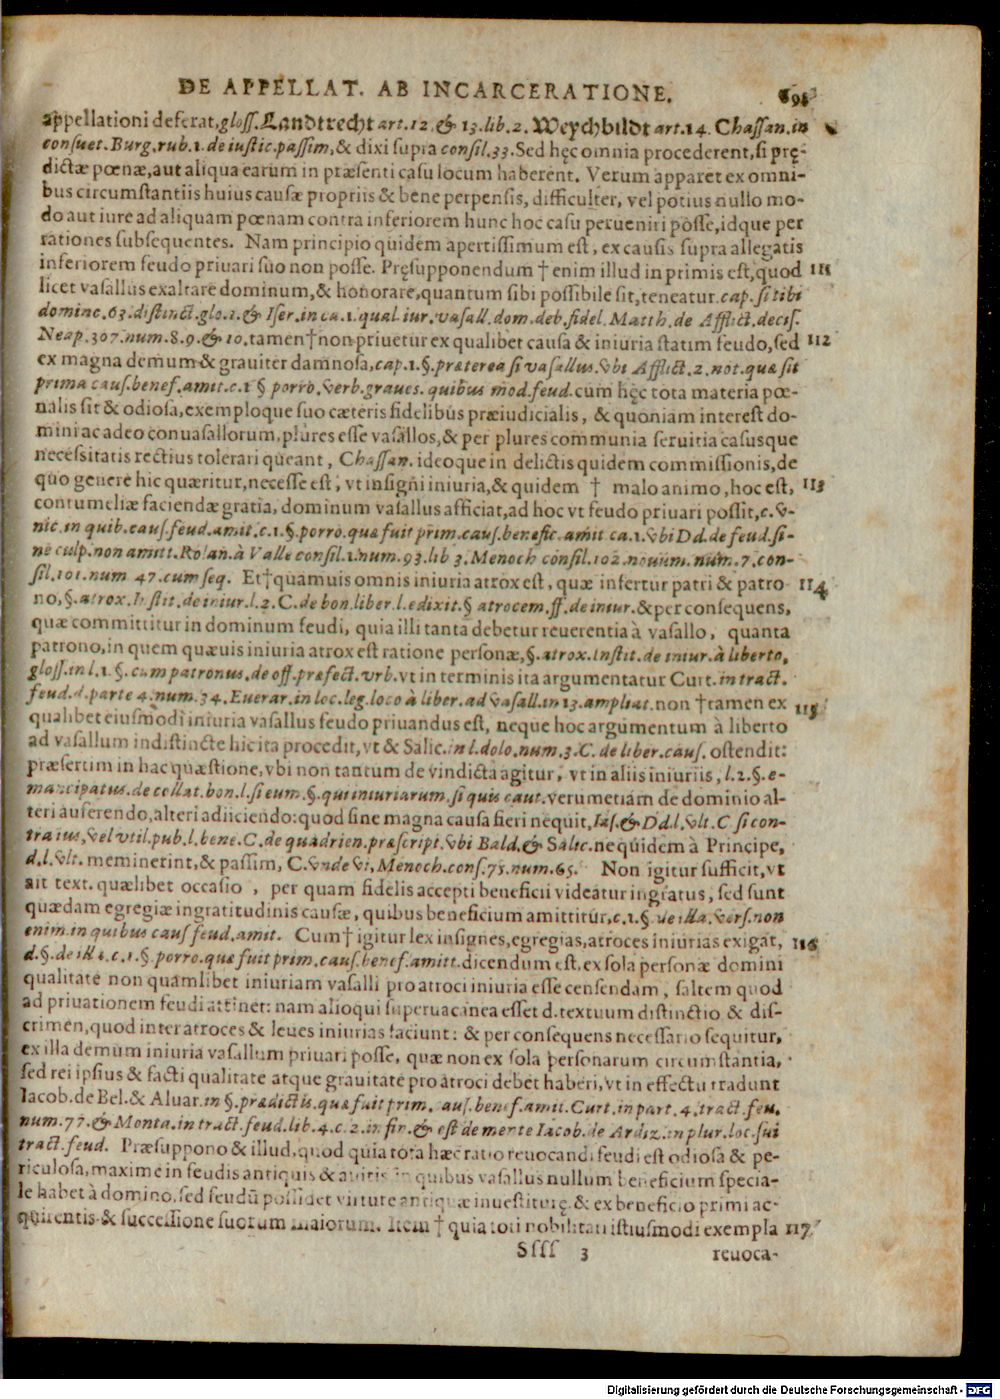 DE APPELLAT. AB INCARCERATIONE.
appellationi deferat, gloss. Landtrecht art. 12. & 13. lib. 2. Weychbildt art. 14. Chassan. in
consuet. Burg. rub. 1. de iustic. passim, & dixi supra consil. 33. Sed hęc omnia procederent, si prę-
dictæ pœnæ, aut aliqua earum in præsenti casu locum haberent. Verum apparet ex omni-
bus circumstantiis huius causæ propriis & bene perpensis, difficulter, vel potius nullo mo-
do aut iure ad aliquam pœnam contra inferiorem hunc hoc casu perueniri posse, idque per
rationes subsequentes. Nam principio quidem apertissimum est, ex causis supra allegatis
inferiorem feudo priuari suo non posse. Pręsupponendum † enim illud in primis est, quod 111
licet vasallus exaltare dominum, & honorare, quantum sibi possibile sit, teneatur. cap. si tibi
domino. 63. distinct. glo. 1. & Iser. in ca. 1. qual. iur. vasall. dom. deb. fidel. Matth. de Afflict. decis.
Neap. 307. num. 8. 9. & 10. tamen † non priuetur ex qualibet causa & iniuria statim feudo, sed 112
ex magna demum & grauiter damnosa, cap. 1. §. præterea si vasallus. vbi Afflict. 2. not. quæ sit
prima caus. benef. amit. c. 1 § porro. verb. graues. quibus mod. feud. cum hęc tota materia pœ-
nalis sit & odiosa, exemploque suo cæteris fidelibus præiudicialis, & quoniam interest do-
mini ac adeo conuasallorum, plures esse vasallos, & per plures communia seruitia casusque
necessitatis rectius tolerari queant, Chassan. ideoque in delictis quidem commissionis, de
quo genere hic quæritur, necesse est, vt insigni iniuria, & quidem † malo animo, hoc est, 113
contumeliæ faciendæ gratia, dominum vasallus afficiat, ad hoc vt feudo priuari possit, c. v-
nic. in quib. caus. feud. amit. c. 1. §. porro. quæ fuit prim. caus. benefic. amit ca. 1. vbi Dd. de feud. si-
ne culp. non amitt. Rolan. à Valle consil. 1. num. 93. lib 3. Menoch consil. 102. nouum. num. 7. con-
sil. 101. num 47. cum seq. Et † quamuis omnis iniuria atrox est, quæ infertur patri & patro 114
no, §. atrox. Instit. de iniur. l. 2. C. de bon. liber. l. edixit. § atrocem. ff. de iniur. & per consequens,
quæ committitur in dominum feudi, quia illi tanta debetur reuerentia à vasallo, quanta
patrono, in quem quæuis iniuria atrox est ratione personæ, §. atrox. Instit. de iniur. à liberto,
gloss. in l. 1. §. cum patronus. de off. præfect. vrb. vt in terminis ita argumentatur Curt. in tract.
feud. d. parte 4. num. 34. Euerar. in loc. leg. loco à liber. ad vasall. in 13. ampliat. non † tamen ex 115
qualibet eiusmodi iniuria vasallus feudo priuandus est, neque hoc argumentum à liberto
ad vasallum indistincte hic ita procedit, vt & Salic. in l. dolo. num. 3. C. de liber. caus. ostendit:
præsertim in hac quæstione, vbi non tantum de vindicta agitur, vt in aliis iniuriis, l. 2. §. e-
mancipatus. de collat. bon. l. si eum. §. qui iniuriarum. si quis caut. verumetiam de dominio al-
teri auferendo, alteri adiiciendo: quod sine magna causa fieri nequit, Ias. & Dd. l. vlt. C si con-
tra ius, vel vtil. pub. l. bene. C. de quadrien. præscript. vbi Bald. & Salic. ne quidem à Principe,
d. l. vlt. meminerint, & passim, C. vnde vi, Menoch. cons. 75. num. 65. Non igitur sufficit, vt
ait text. quælibet occasio, per quam fidelis accepti beneficii videatur ingratus, sed sunt
quædam egregiæ ingratitudinis causæ, quibus beneficium amittitur, c. 1. § de illa. vers. non
enim. in quibus caus feud. amit. Cum † igitur lex insignes, egregias, atroces iniurias exigat, 116
d. §. de illa. c. 1. §. porro. quæ fuit prim. caus. benef. amitt. dicendum est, ex sola personæ domini
qualitate non quamlibet iniuriam vasalli pro atroci iniuria esse censendam, saltem quod
ad priuationem feudi attinet: nam alioqui superuacanea esset d. textuum distinctio & dis-
crimen, quod inter atroces & leues iniurias faciunt: & per consequens necessario sequitur,
ex illa demum iniuria vasallum priuari posse, quæ non ex sola personarum circumstantia,
sed rei ipsius & facti qualitate atque grauitate pro atroci debet haberi, vt in effectu tradunt
Iacob. de Bel. & Aluar. in §. prædictis. quæ fuit prim. caus. benef. amit. Curt. in part. 4. tract. feu.
num. 77. & Monta. in tract. feud. lib. 4. c. 2. in fin. & est de mente Iacob. de Ardiz. in plur. loc. sui
tract. feud. Præsuppono & illud, quod quia tota hæc ratio reuocandi feudi est odiosa & pe-
riculosa, maxime in feudis antiquis & auitis in quibus vasallus nullum beneficium specia-
le habet à domino, sed feudū possidet virtute antiquæ inuestiturę. & ex beneficio primi ac-
quirentis & successione suorum maiorum. Item † quia toti nobilitati istiusmodi exempla 117
Ssss 3 reuoca-
Digitalisierung gefördert durch die Deutsche Forschungsgemeinschaft - DFG